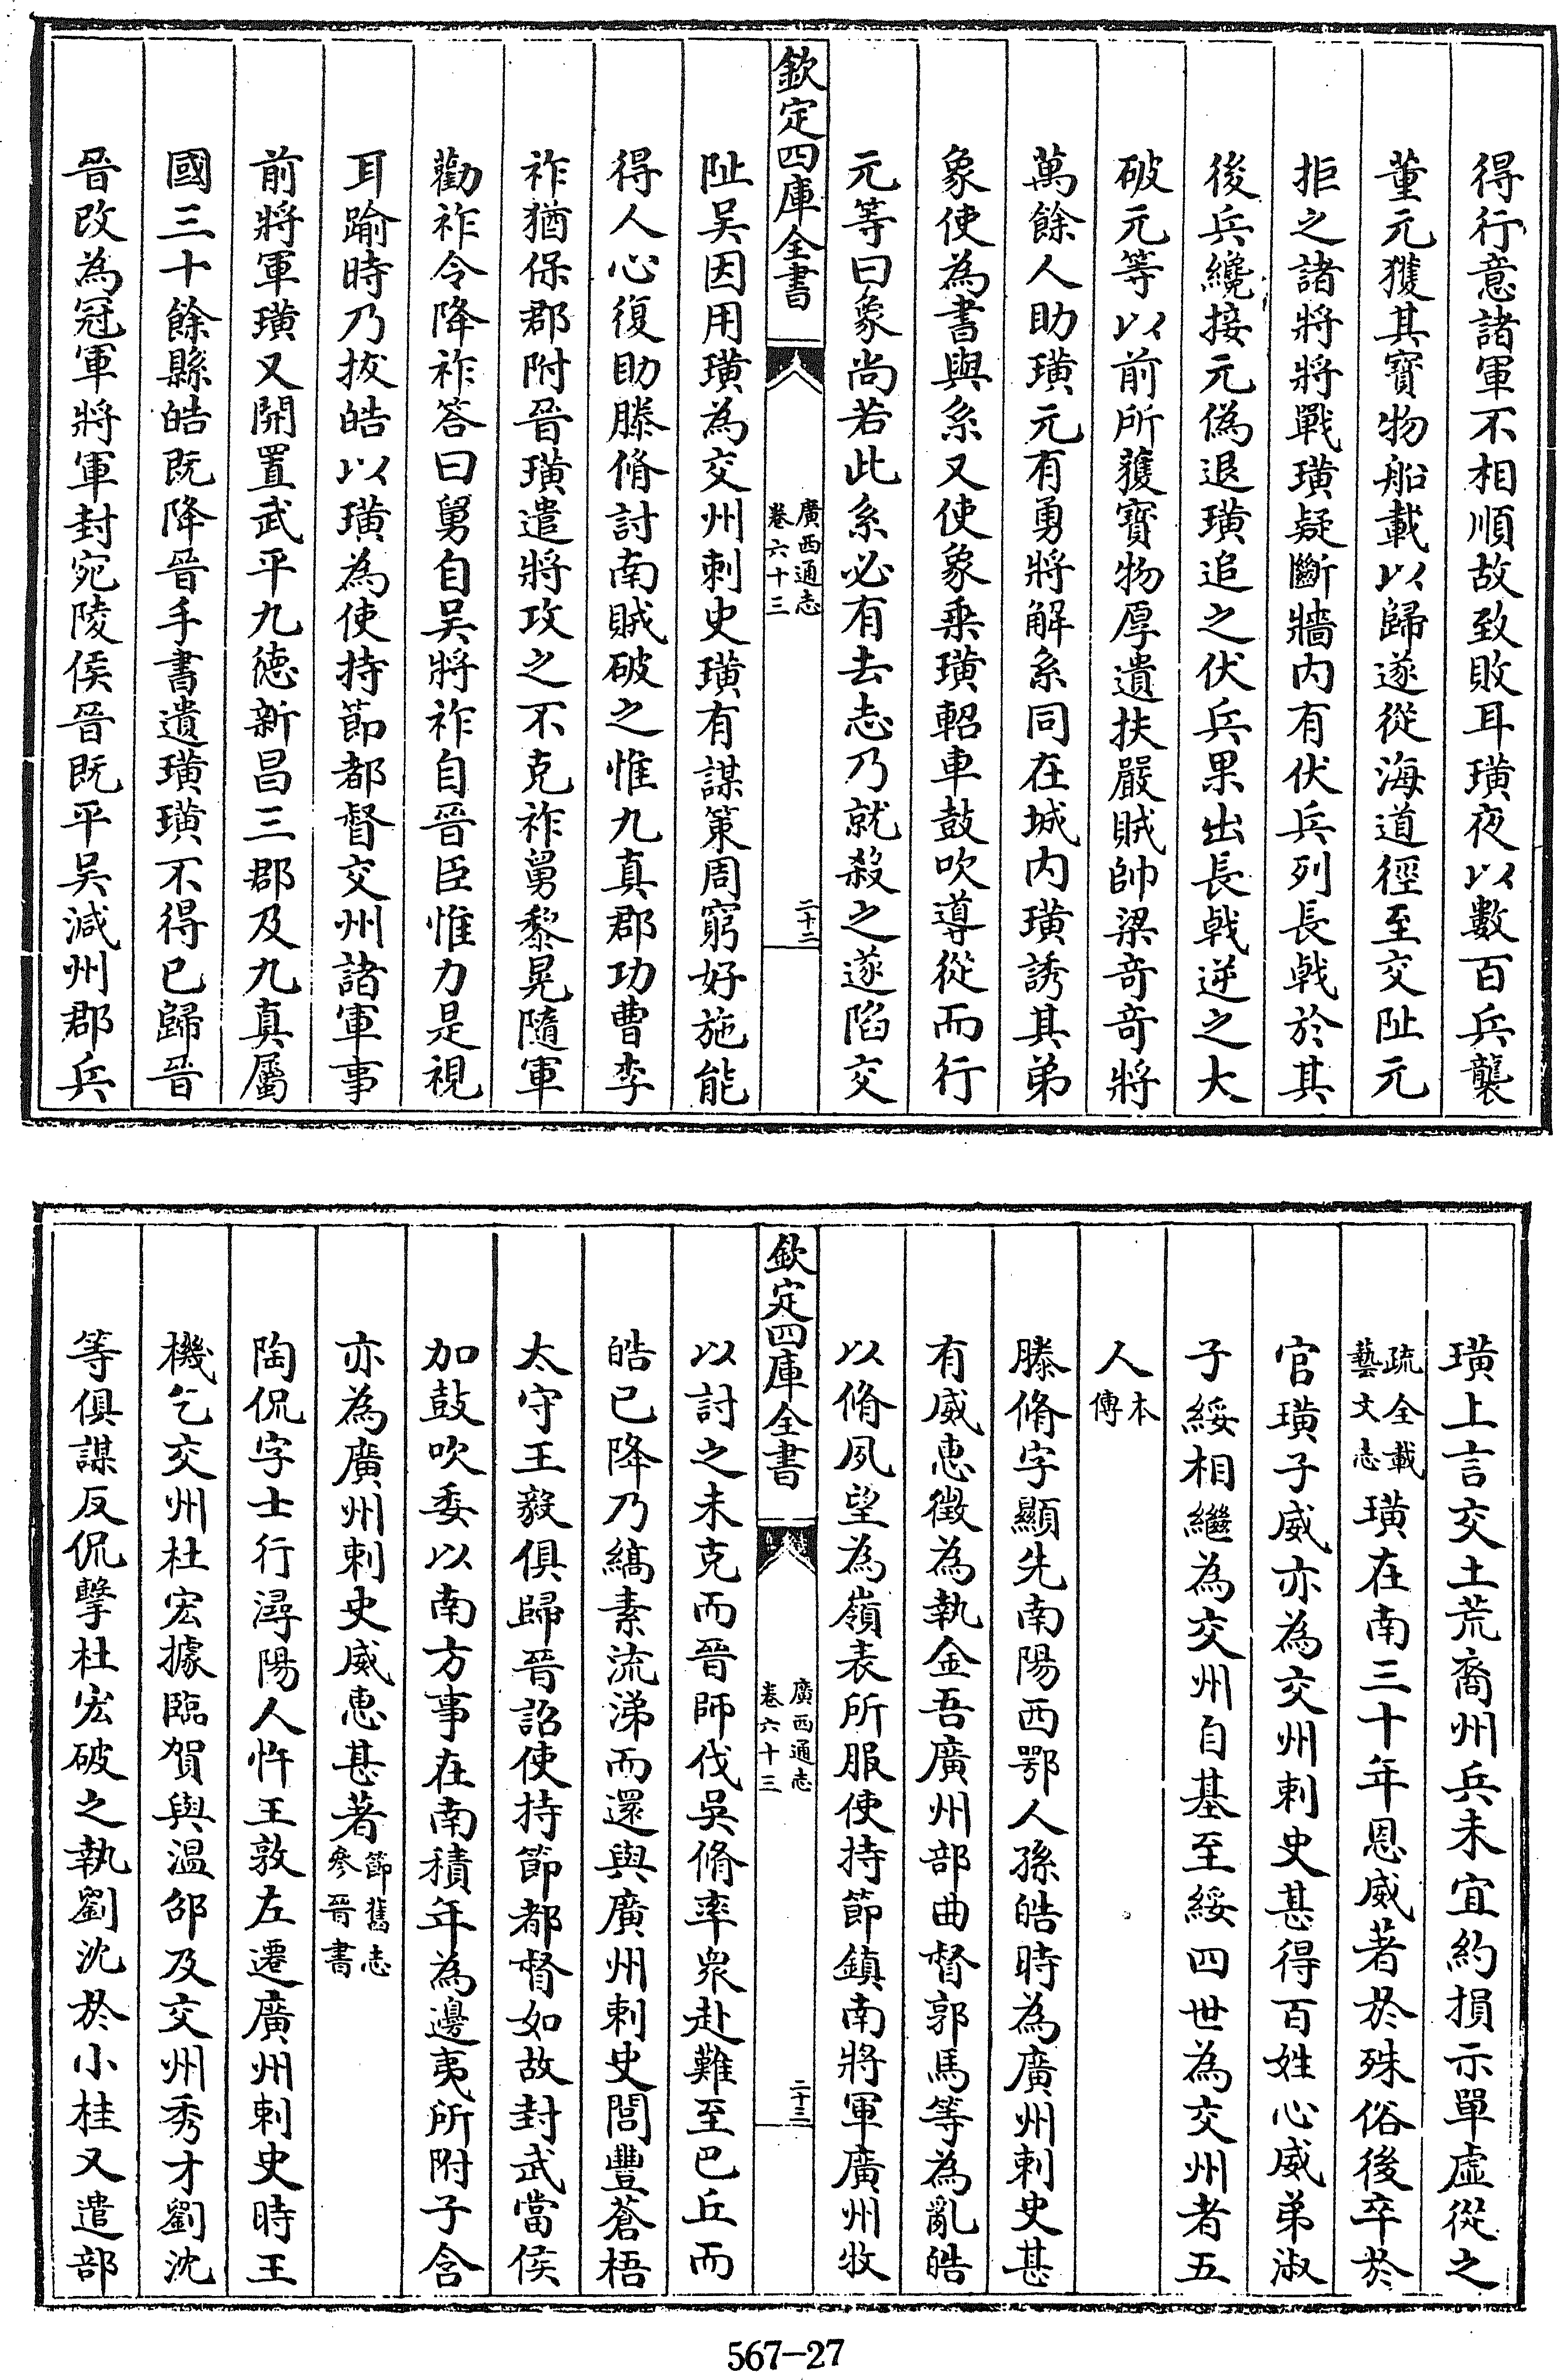 得行意諸軍不相順故致敗耳璜夜以數百兵襲
董元獲其寶物船載以歸遂從海道徑至交阯元
拒之諸將將戰璜疑斷牆内有伏兵列長㦸於其
後兵纔接元偽退璜追之伏兵果出長㦸逆之大
破元等以前所獲寳物厚遺扶嚴賊帥梁奇奇將
萬餘人助璜元有勇將解系同在城内璜誘其弟
象使為書與系又使象乗璜軺車鼓吹導從而行
元等曰象尚若此系必有去志乃就殺之遂陷交
欽定四庫全書
廣西通志
卷六十三
二十二
阯吳因用璜為交州刺史璜有謀策周窮好施能
得人心復助滕脩討南賊破之惟九真郡功曹李
祚猶保郡附晉璜遣將攻之不克祚舅黎晃隨軍
勸祚令降祚答曰舅自吳將祚自晉臣惟力是視
耳踰時乃拔皓以璜為使持節都督交州諸軍事
前將軍璜又開置武平九徳新昌三郡及九真屬
國三十餘縣皓既降晉手書遺璜璜不得已歸晉
晉改為冠軍將軍封宛陵侯晉既平吳減州郡兵
璜上言交土荒裔州兵未宜約損示單虚從之
疏全載
藝文志
璜在南三十年恩威著於殊俗後卒於
官璜子威亦為交州刺史甚得百姓心威弟淑
子綏相繼為交州自基至綏四世為交州者五
人
本
傳
滕脩字顯先南陽西鄂人孫皓時為廣州刺史甚
有威惠徵為執金吾廣州部曲督郭馬等為亂皓
以脩夙望為嶺表所服使持節鎮南將軍廣州牧
欽定四庫全書
廣西通志
卷六十三
二十三
以討之未克而晉師伐吳脩率衆赴難至巴丘而
皓已降乃縞素流涕而還與廣州刺史閭豐蒼梧
太守王毅俱歸晉詔使持節都督如故封武當侯
加鼓吹委以南方事在南積年為邊夷所附子含
亦為廣州刺史威惠甚著
節舊志
參晉書
陶侃字士行潯陽人忤王敦左遷廣州刺史時王
機乞交州杜宏據臨賀與温邵及交州秀才劉沈
等俱謀反侃擊杜宏破之執劉沈於小桂又遣部
567-27